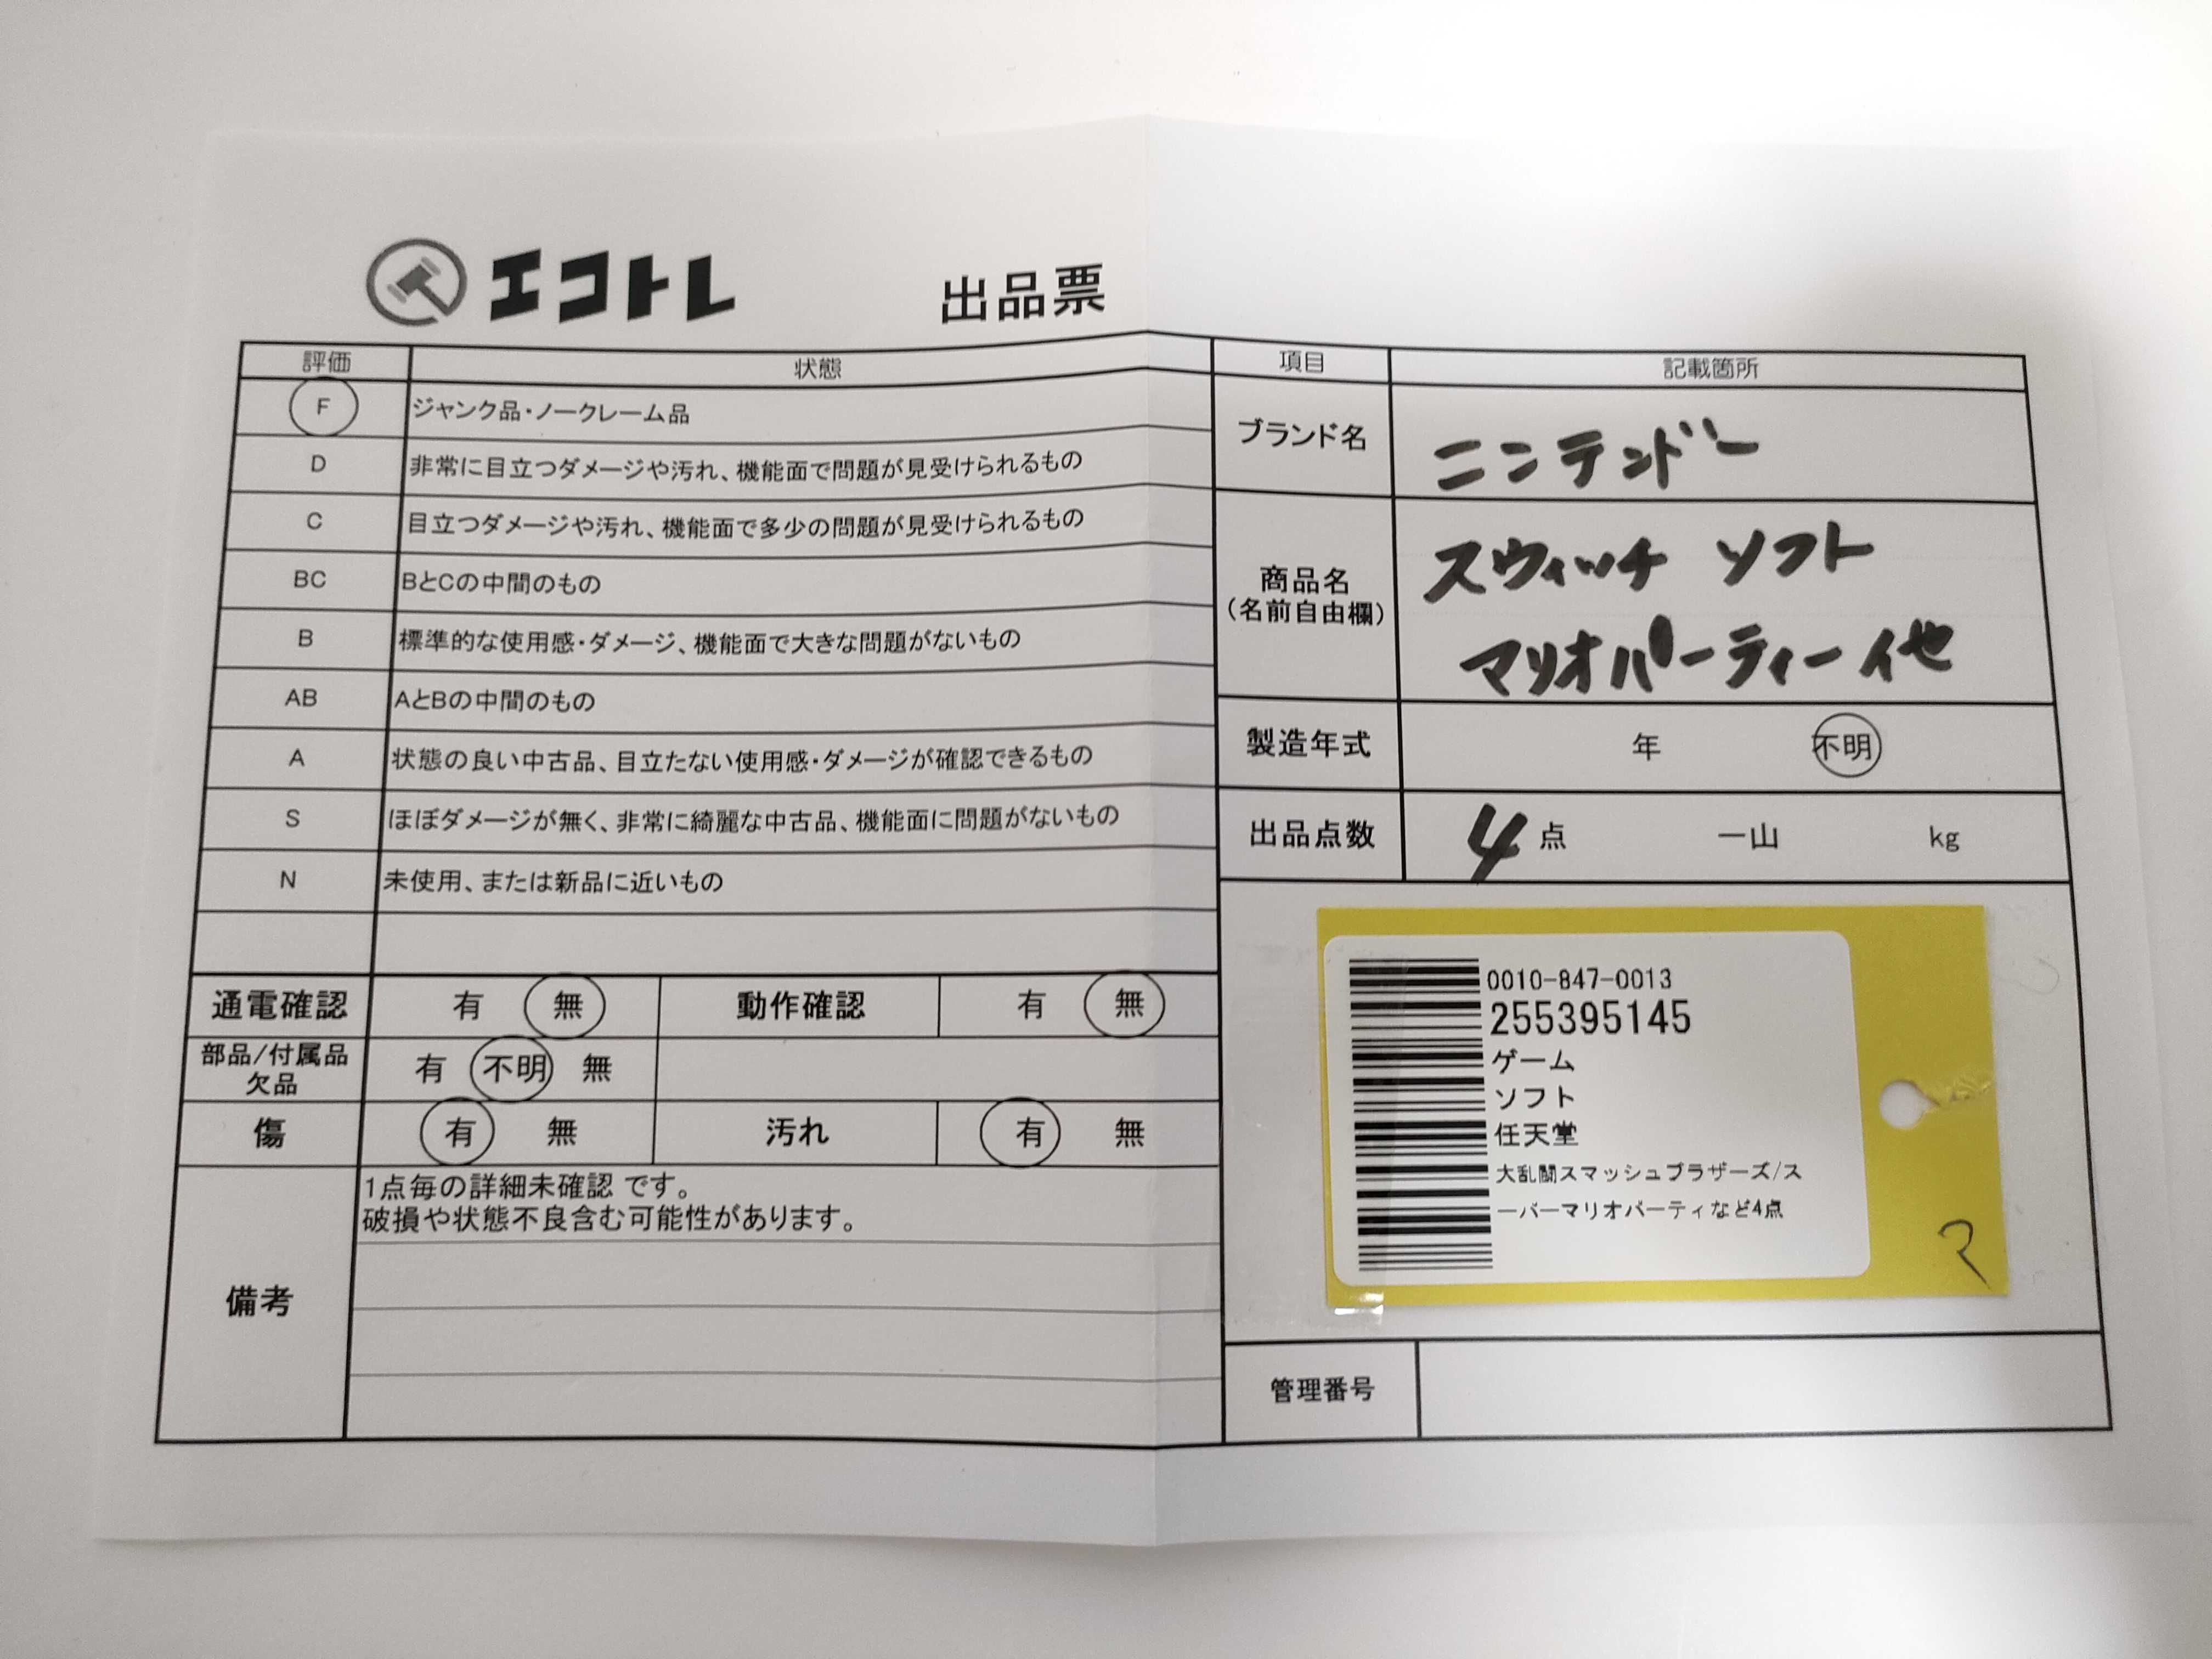 エコトレ 出品票
評価 状態
F ジャンク品・ノークレーム品
D 非常に目立つダメージや汚れ、機能面で問題が見受けられるもの
C 目立つダメージや汚れ、機能面で多少の問題が見受けられるもの
BC BとCの中間のもの
B 標準的な使用感・ダメージ、機能面で大きな問題がないもの
AB AとBの中間のもの
A 状態の良い中古品、目立たない使用感・ダメージが確認できるもの
S ほぼダメージが無く、非常に綺麗な中古品、機能面に問題がないもの
N 未使用、または新品に近いもの
通電確認 有 無 動作確認 有 無
部品/付属品
欠品 有 不明 無
傷 有 無 汚れ 有 無
備考
1点毎の詳細未確認 です。
破損や状態不良含む可能性があります。
項目 記載箇所
ブランド名 ニンテンドー
商品名
(名前自由欄)
スウィッチ ソフト
マリオパーティー他
製造年式 年 不明
出品点数 4 点 一山 kg
0010-847-0013
255395145
ゲーム
ソフト
任天堂
大乱闘スマッシュブラザーズ/ス
ーパーマリオパーティなど4点
管理番号